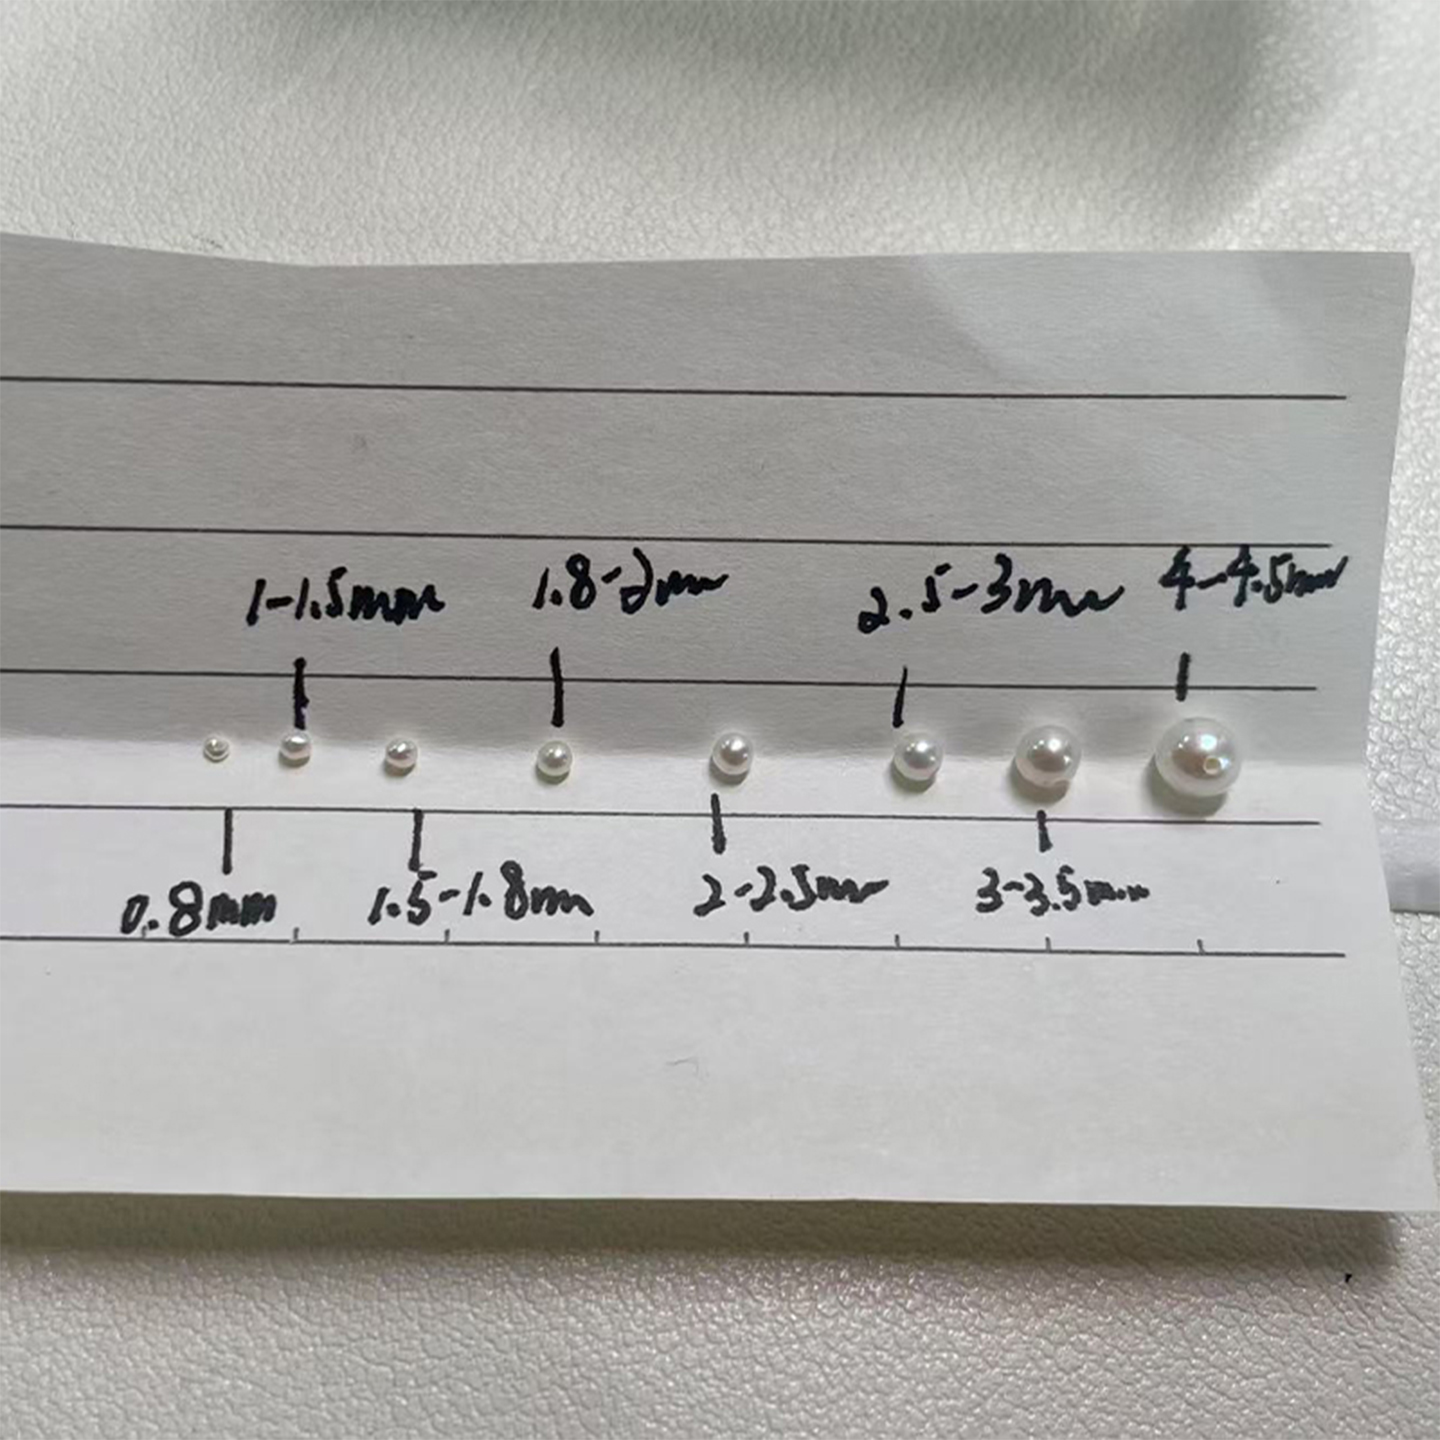 1-1.5mm
1.8-2mm
2.5-3mm
4-4.5mm
0.8mm
1.5-1.8mm
2-2.5mm
3-3.5mm